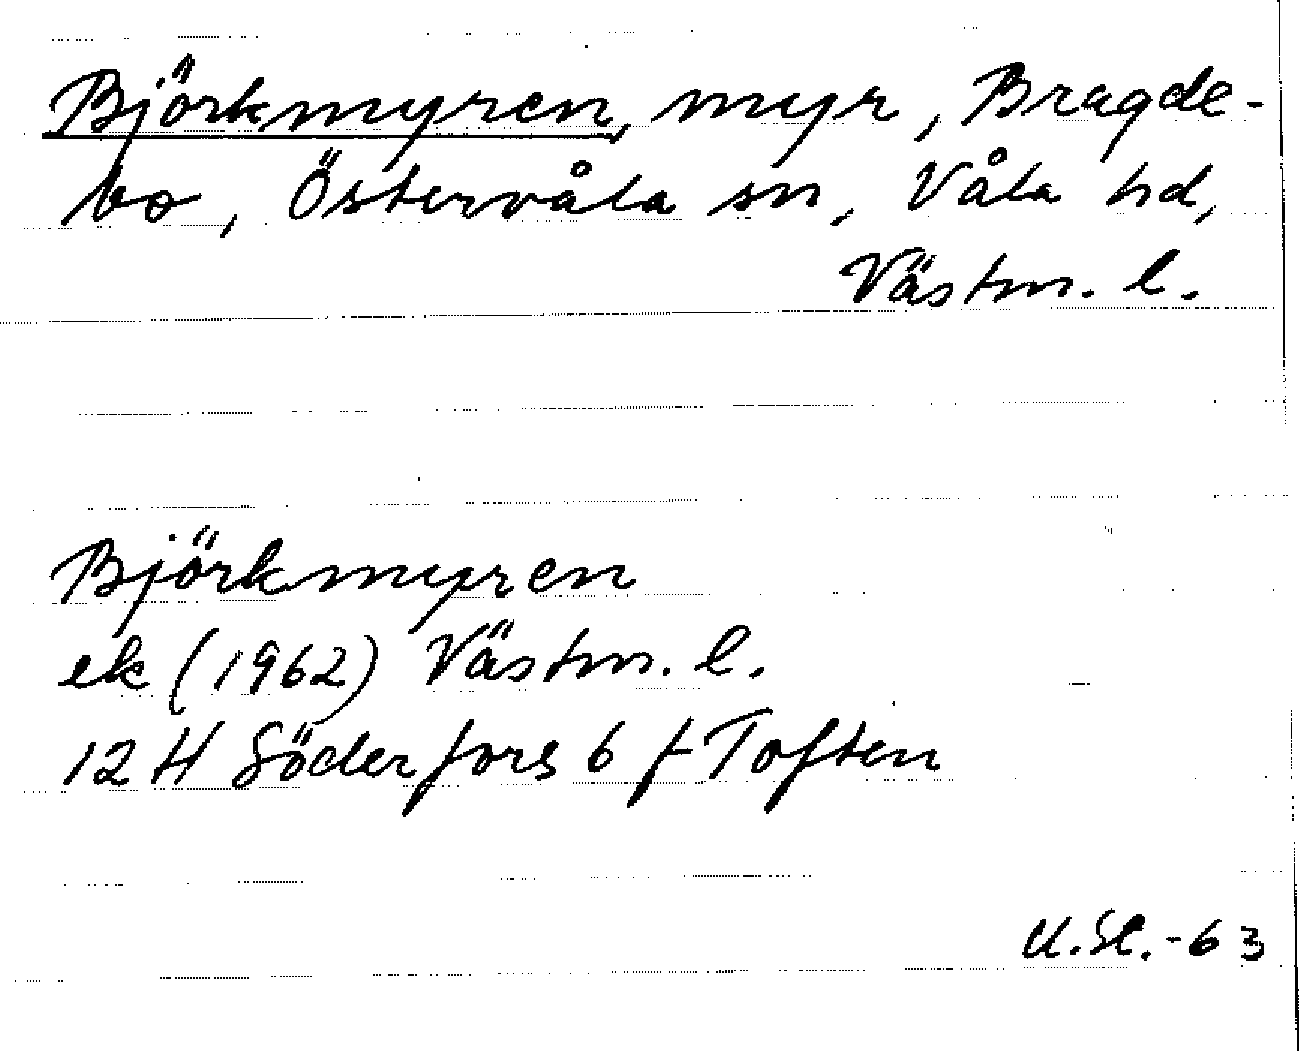 Björkmyren, myr, Bragde-
bo, Östervåla sn, Våla hd,
Västm. l.
Björkmyren
ek (1962) Västm. l.
12 H Söderfors 6 f Toften
U.Sl.-63